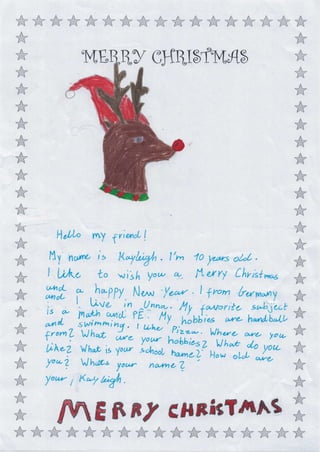 MERRY CHRISTMAS
Hello my friend!
My name is Kayleigh. I'm 10 years old.
I like to wish you a Merry Christmas
and a happy New Year. I from Germany
and I live in Unna. My favorite subject
is a math and PE. My hobbies are handball
and swimming. I like Pizza. Where are you
from? What are your hobbies? What do you
like? What is your school name? How old are
you? Whats your name?
your, Kayleigh.
MERRY CHRISTMAS